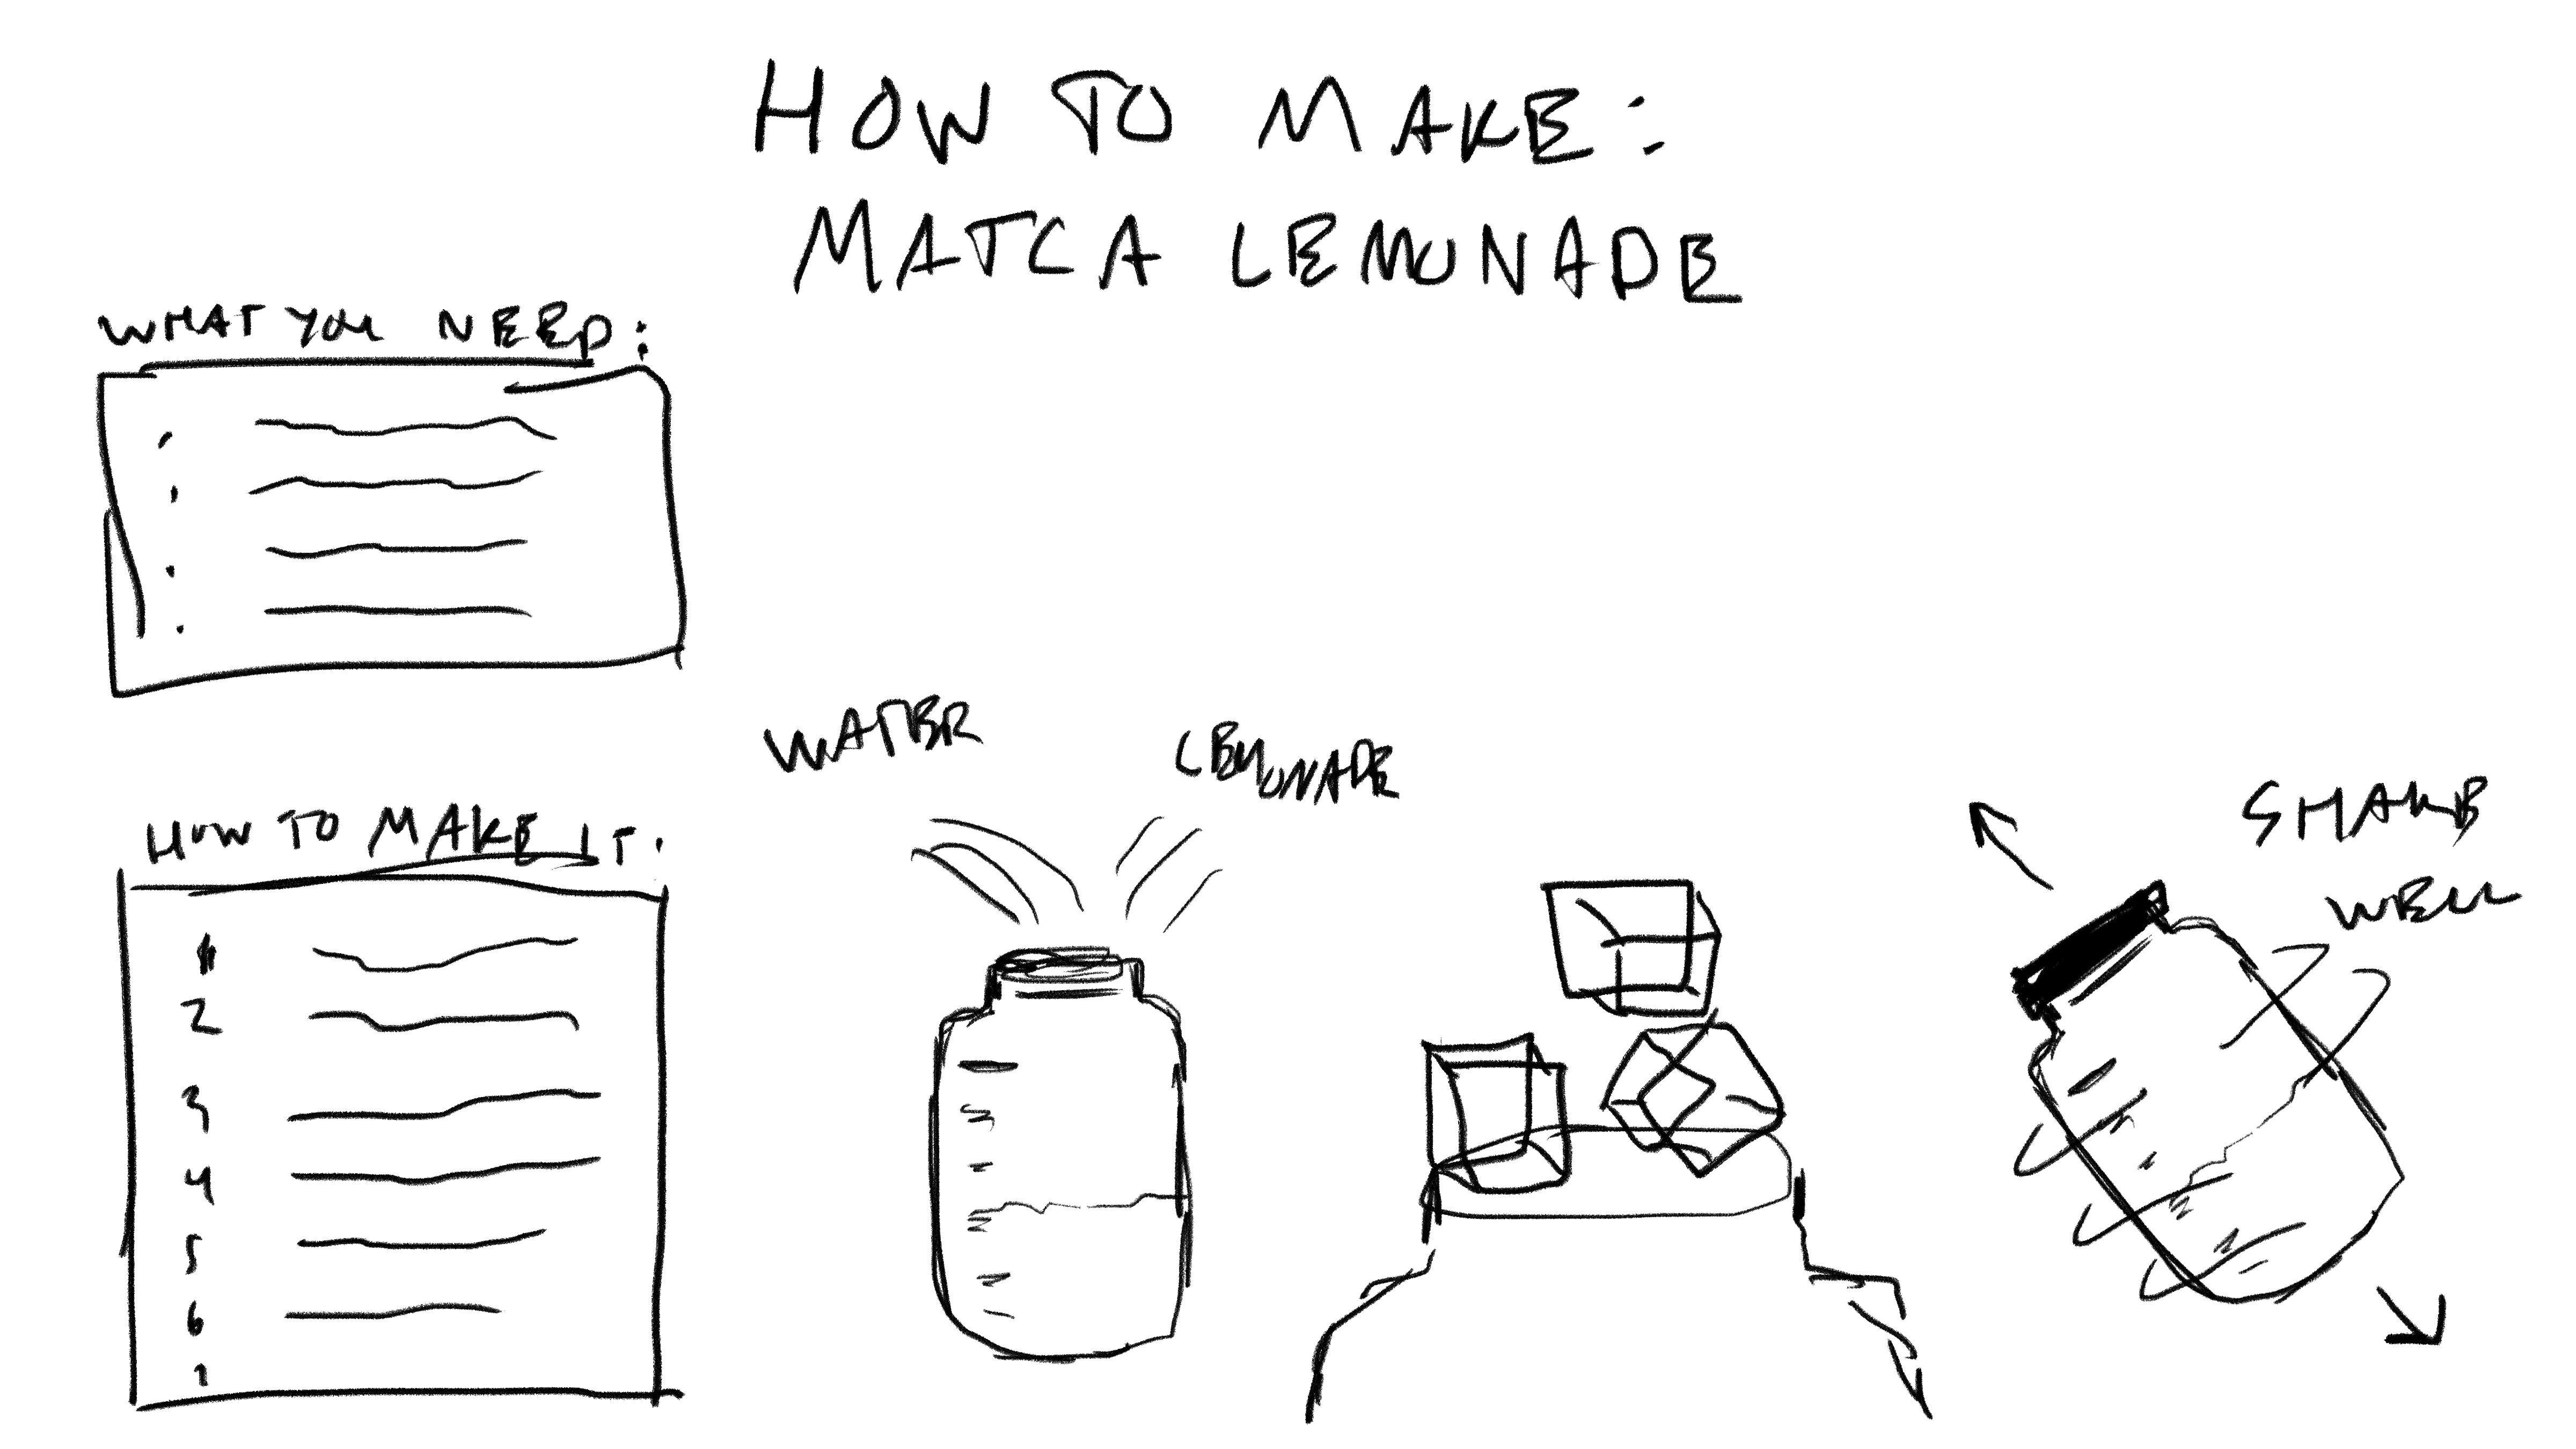 HOW TO MAKE:
MATCA LEMONADE
WHAT YOU NEED:
HOW TO MAKE IT.
1
2
3
4
5
6
7
WATER
LEMONADE
SHAKE
WELL